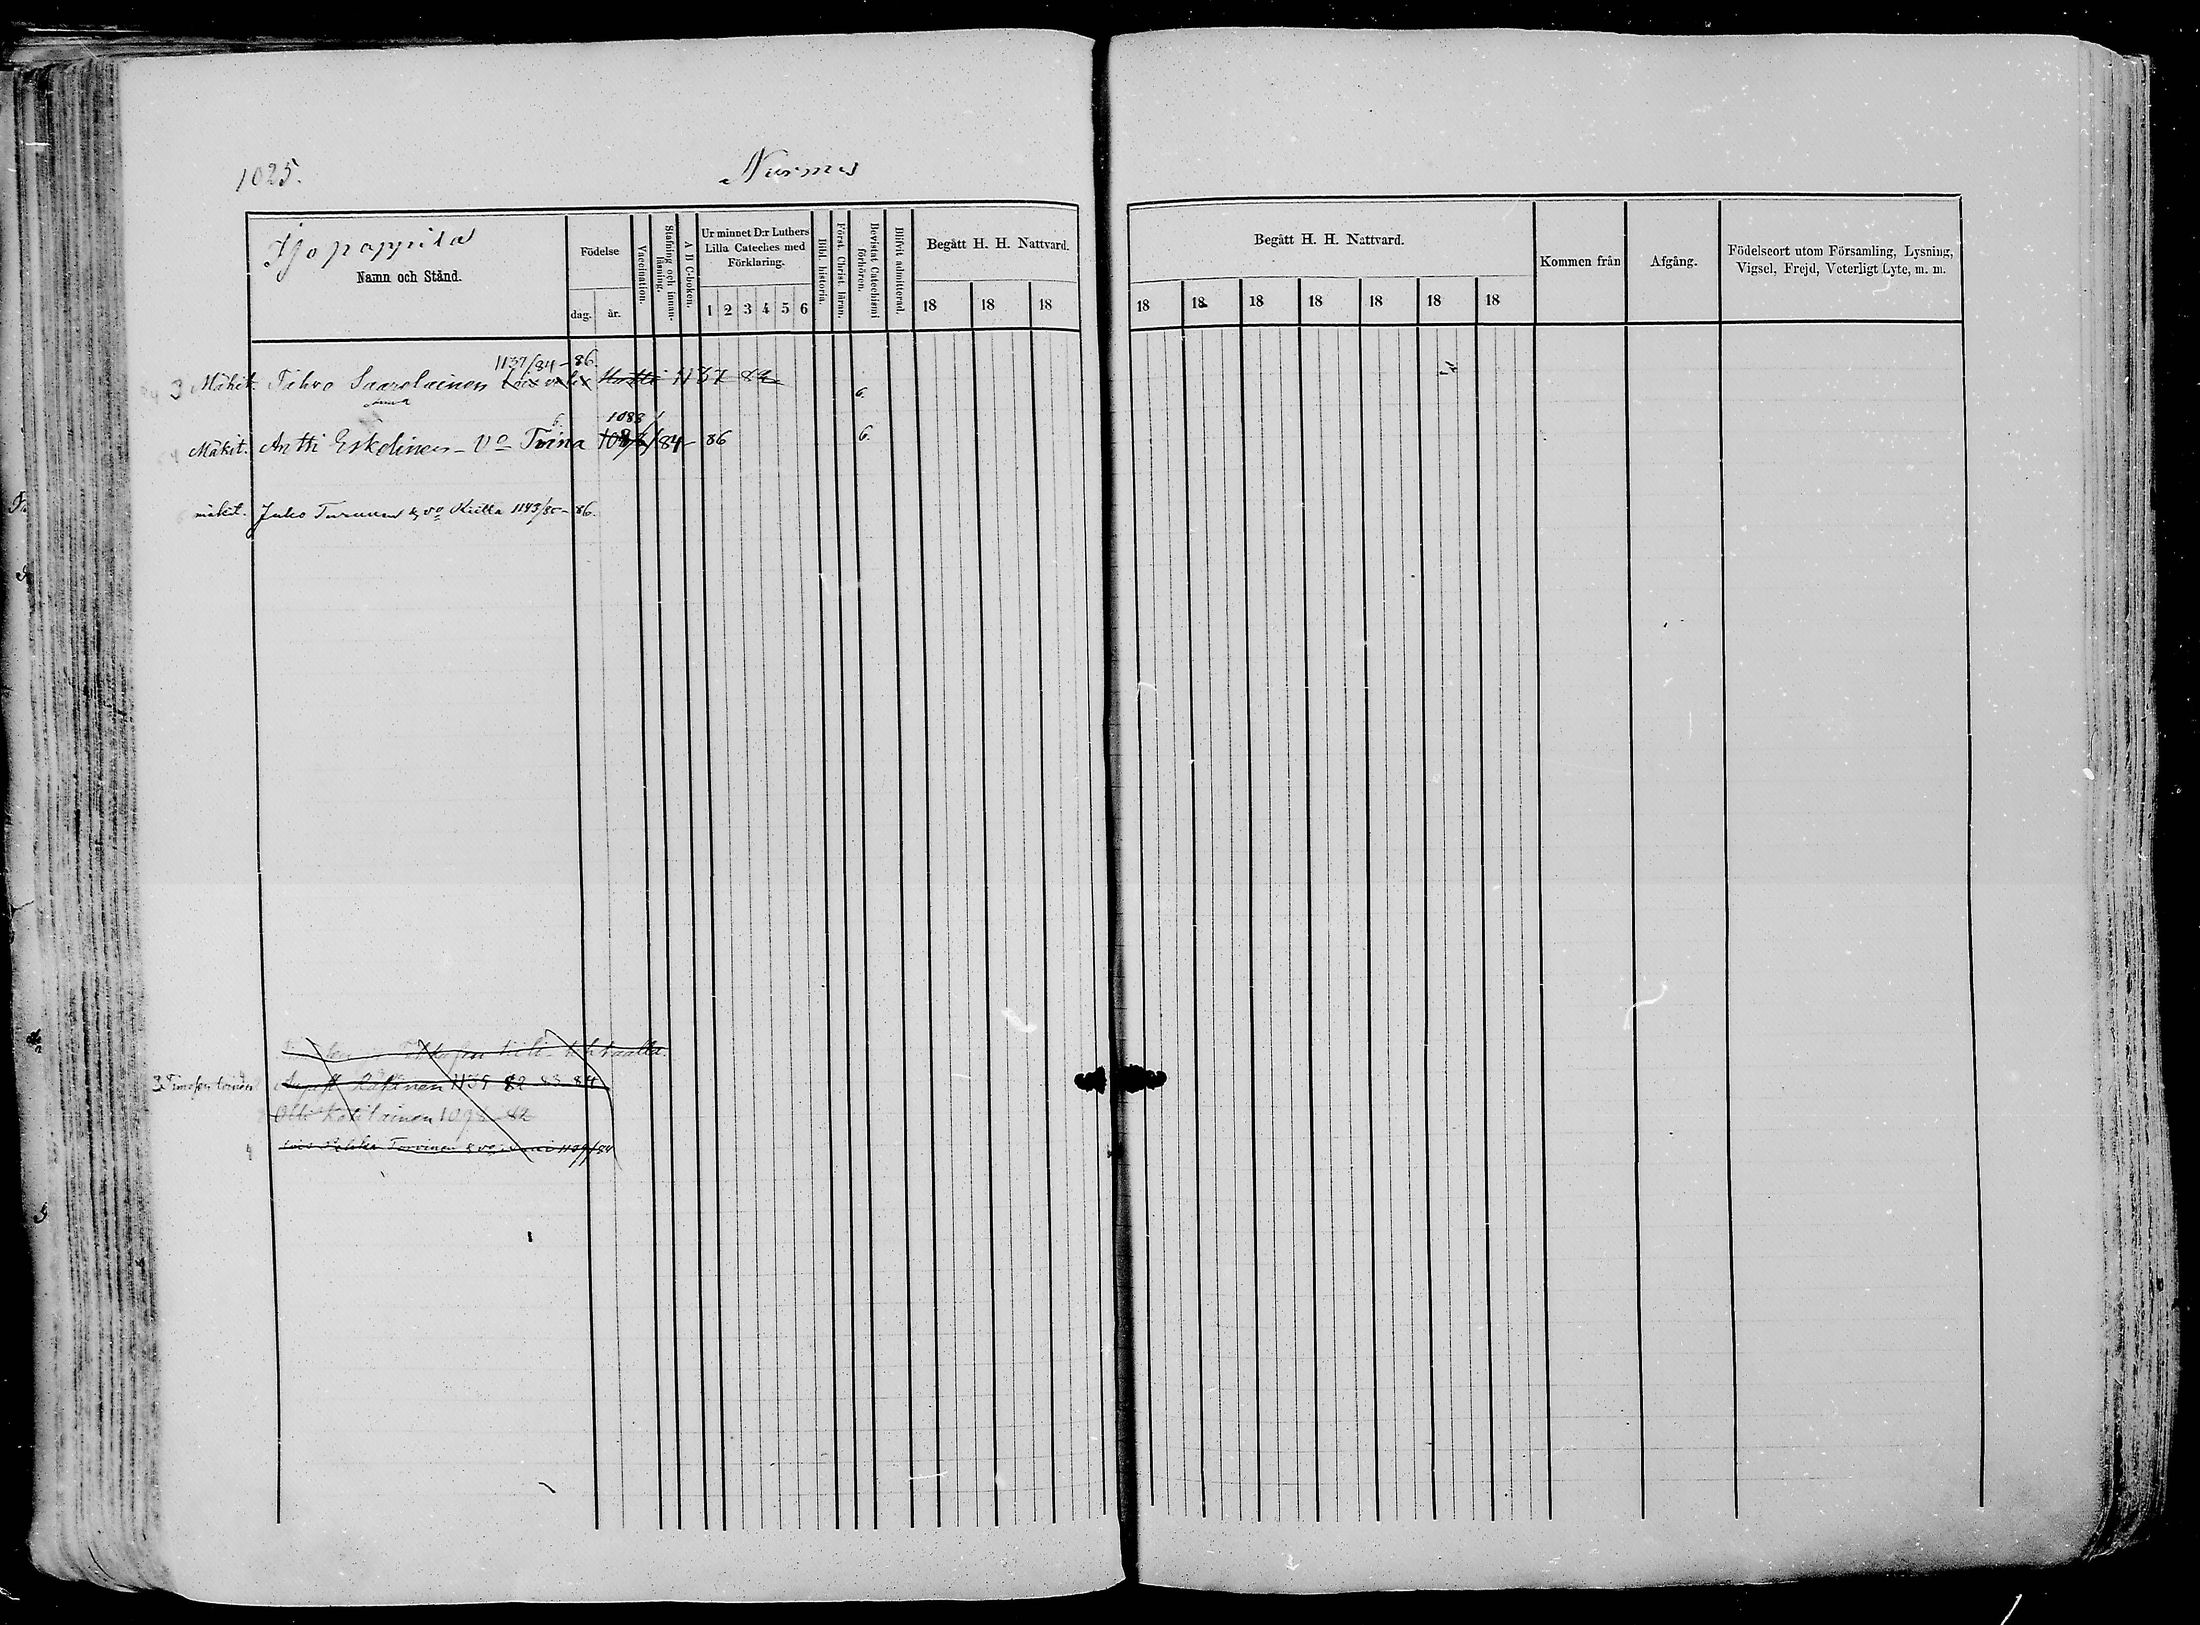 1025.
Nurmes
Namn och Stånd.
Födelse
dag.
år.
Vaccination.
Stafning och innanläsning.
A B C-boken.
Ur minnet D:r Luthers Lilla Cateches med Förklaring.
1 2 3 4 5 6
Bibl. historia.
Först. Christ. läran.
Bevistat Catechismi förhören.
Blifvit admitterad.
Begått H. H. Nattvard.
18 18 18
Begått H. H. Nattvard.
18 18 18 18 18 18 18
Kommen från
Afgång.
Födelseort utom Församling, Lysning, Vigsel, Frejd, Veterligt Lyte, m. m.
1137/84-86
3 Mäkit. Tahvo Saarelainen 1137 82
6.
1088
Mäkit. Antti Eskelinen - Vo Trina /84-86
6.
mäkit. Juho Turunen & vo Riitta 1143/85-86.
3 1139 82 83 84
Olli Kotilainen 82
4 Pekka Torvinen & vo 1139/84